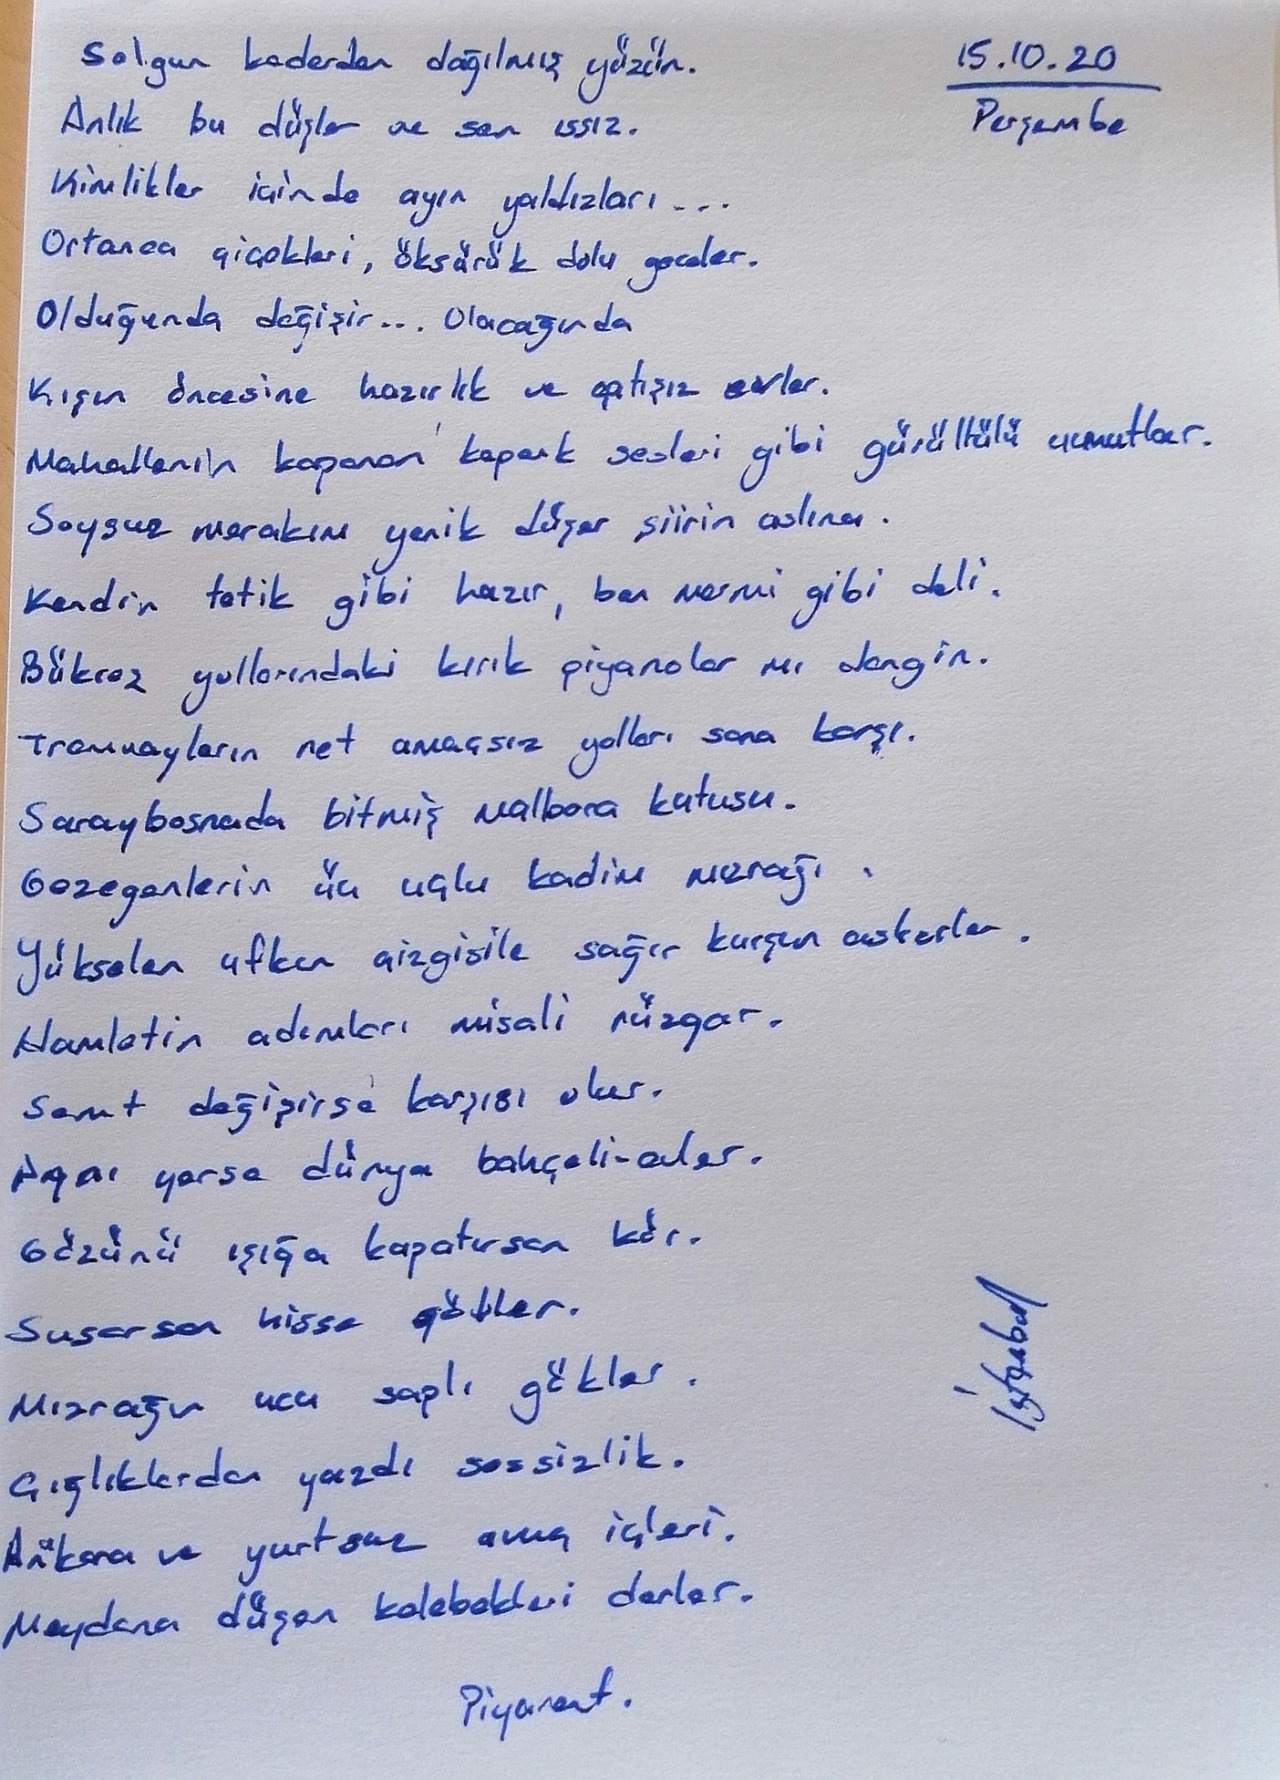 15.10.20
Perşembe
Solgun kederden dağılmış yüzün.
Anlık bu düşler ve sen ıssız.
Kimlikler içinde ayın yaldızları...
Ortanca çiçekleri, öksürük dolu geceler.
Olduğunda değişir... Olacağında
Kışın öncesine hazırlık ve çatışız evler.
Mahallenin kapanan kepenk sesleri gibi gürültülü umutlar.
Soysuz merakım yenik düşer şiirin aslına.
Kendin tetik gibi hazır, ben mermi gibi deli.
Bükreş yollarındaki kırık piyanolar mı dengin.
Tramvayların net amaçsız yolları sana karşı.
Saraybosnada bitmiş Malbora kutusu.
Gezegenlerin üç uçlu kadim mızrağı.
Yükselen ufkun çizgisile sağır kurşun askerler.
Hamletin adımları misali rüzgar.
Semt değişirse karşısı olur.
Açar yerse dünya bahçeli-evler.
Gözünü ışığa kapatırsan kör.
Susarsan hisse gökler.
Mızrağın ucu saplı gökler.
Çığlıklardan yazdı sessizlik.
Ankara ve yurtsuz avuç içleri.
Meydana düşen kelebekleri derler.
Piyanent.
İstanbul